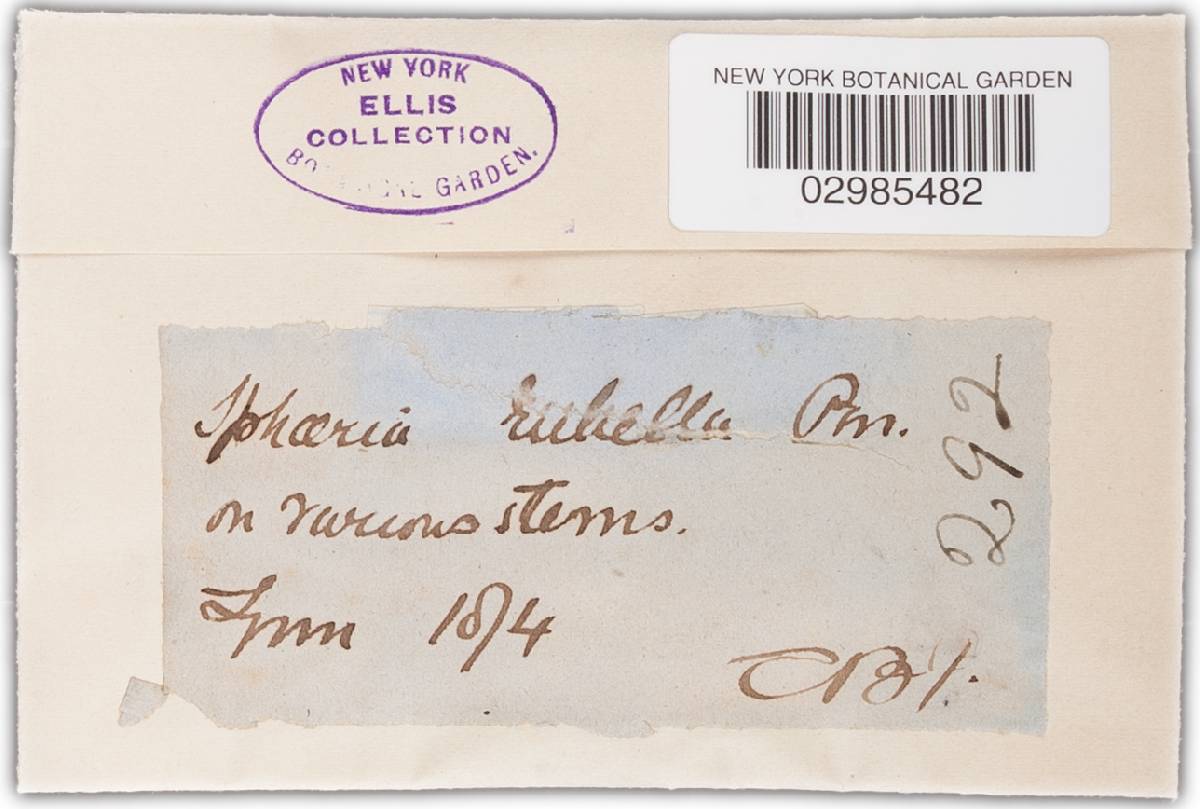 NEW YORK
ELLIS
COLLECTION
BOTANICAL GARDEN.
NEW YORK BOTANICAL GARDEN
02985482
Sphæria rubella Prn.
on various stems.
Lynn 1874
CBP.
292